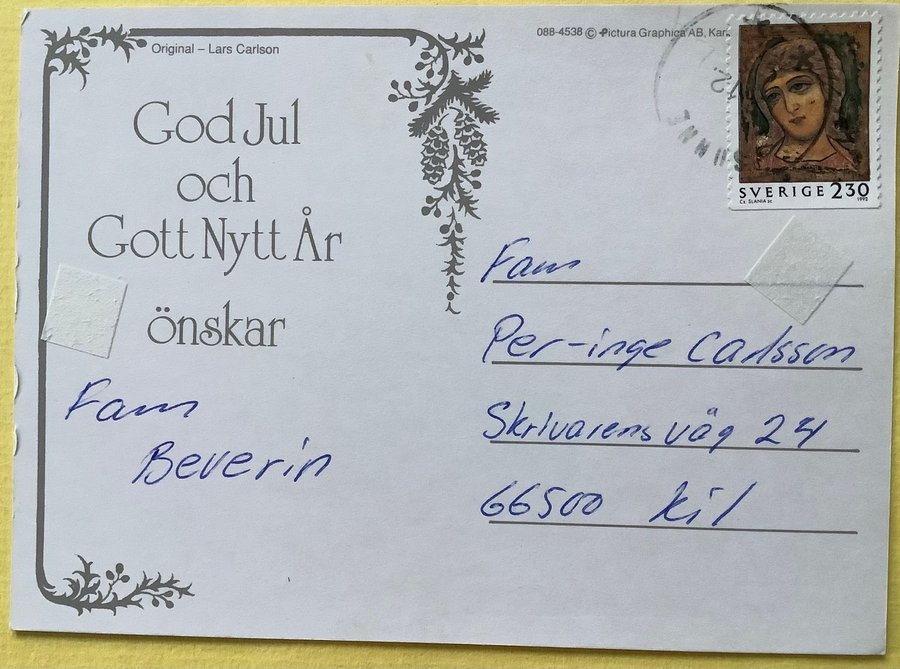 Original – Lars Carlson
088-4538 © Pictura Graphica AB, Kar
God Jul
och
Gott Nytt År
önskar
Fam
Beverin
SUNNE
SVERIGE 2.30
CZ. SLANIA SC. 1992
Fam
Per-inge Carlsson
Skrivarens väg 24
66500 Kil